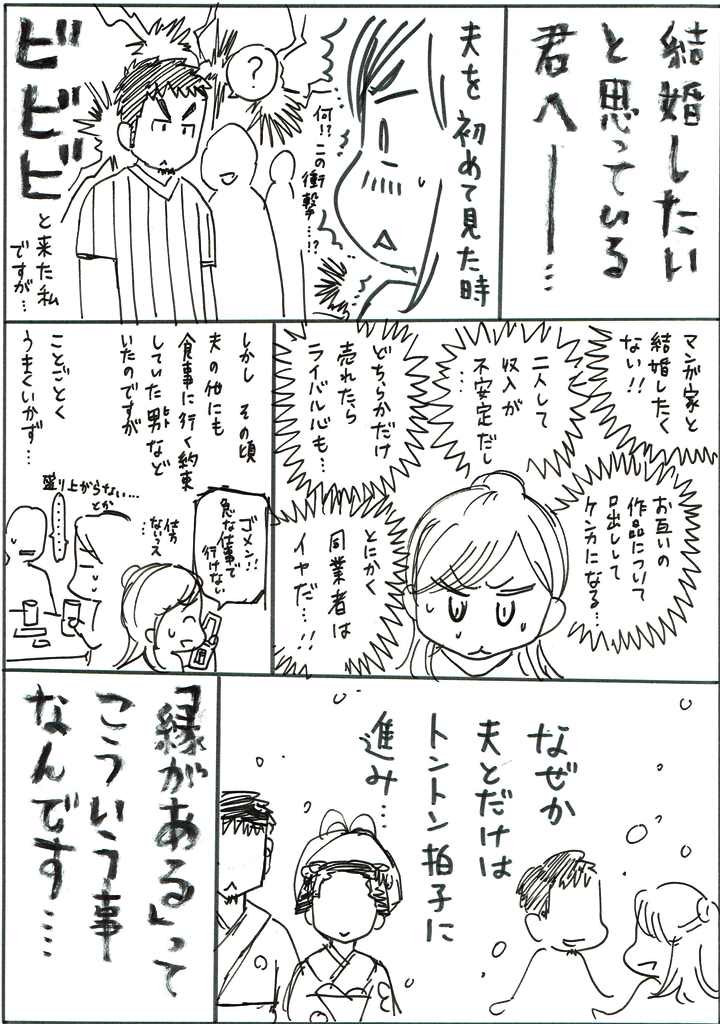 結婚したい
と思っている
君へ――…
夫を初めて見た時
何!?この衝撃…!?
?
ビビビ
と来た私
ですが…
マンガ家と
結婚したく
ない!!
二人して
収入が
不安定だし
…
どちらかだけ
売れたら
ライバル心も…
お互いの
作品について
口出しして
ケンカになる…
とにかく
同業者は
イヤだ…!!
しかし その頃
夫の他にも
食事に行く約束
していた男など
いたのですが
ことごとく
うまくいかず…
ゴメン!!
急な仕事で
行けない
仕方
ないっスね
…
盛り上がらない…
とか
………
なぜか
夫とだけは
トントン拍子に
進み…
「縁がある」って
こういう事
なんです…